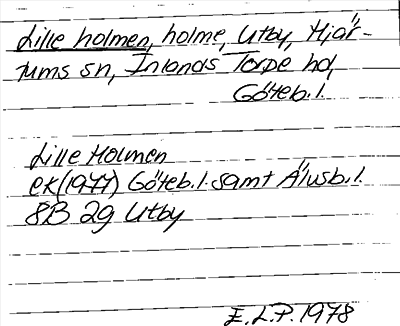 Lille holmen, holme, Utby, Hjär-
tums sn, Inlands Torpe hd,
Göteb. l.
Lille Holmen
ek (1977) Göteb. l. samt Älvsb. l.
8B 2g Utby
E.L.P. 1978